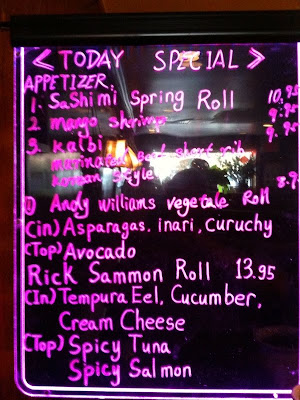 < TODAY SPECIAL >
APPETIZER:
1. SaShimi Spring Roll 10.95
2. mango shrimp 9.95
3. Kalbi 9.95
marinated Beef short rib
Korean style
① Andy Williams vegetale Roll 8.95
(in) Asparagas. inari, Curuchy
(Top) Avocado
Rick Sammon Roll 13.95
(In) Tempura Eel, Cucumber,
Cream Cheese
(Top) Spicy Tuna
Spicy Salmon